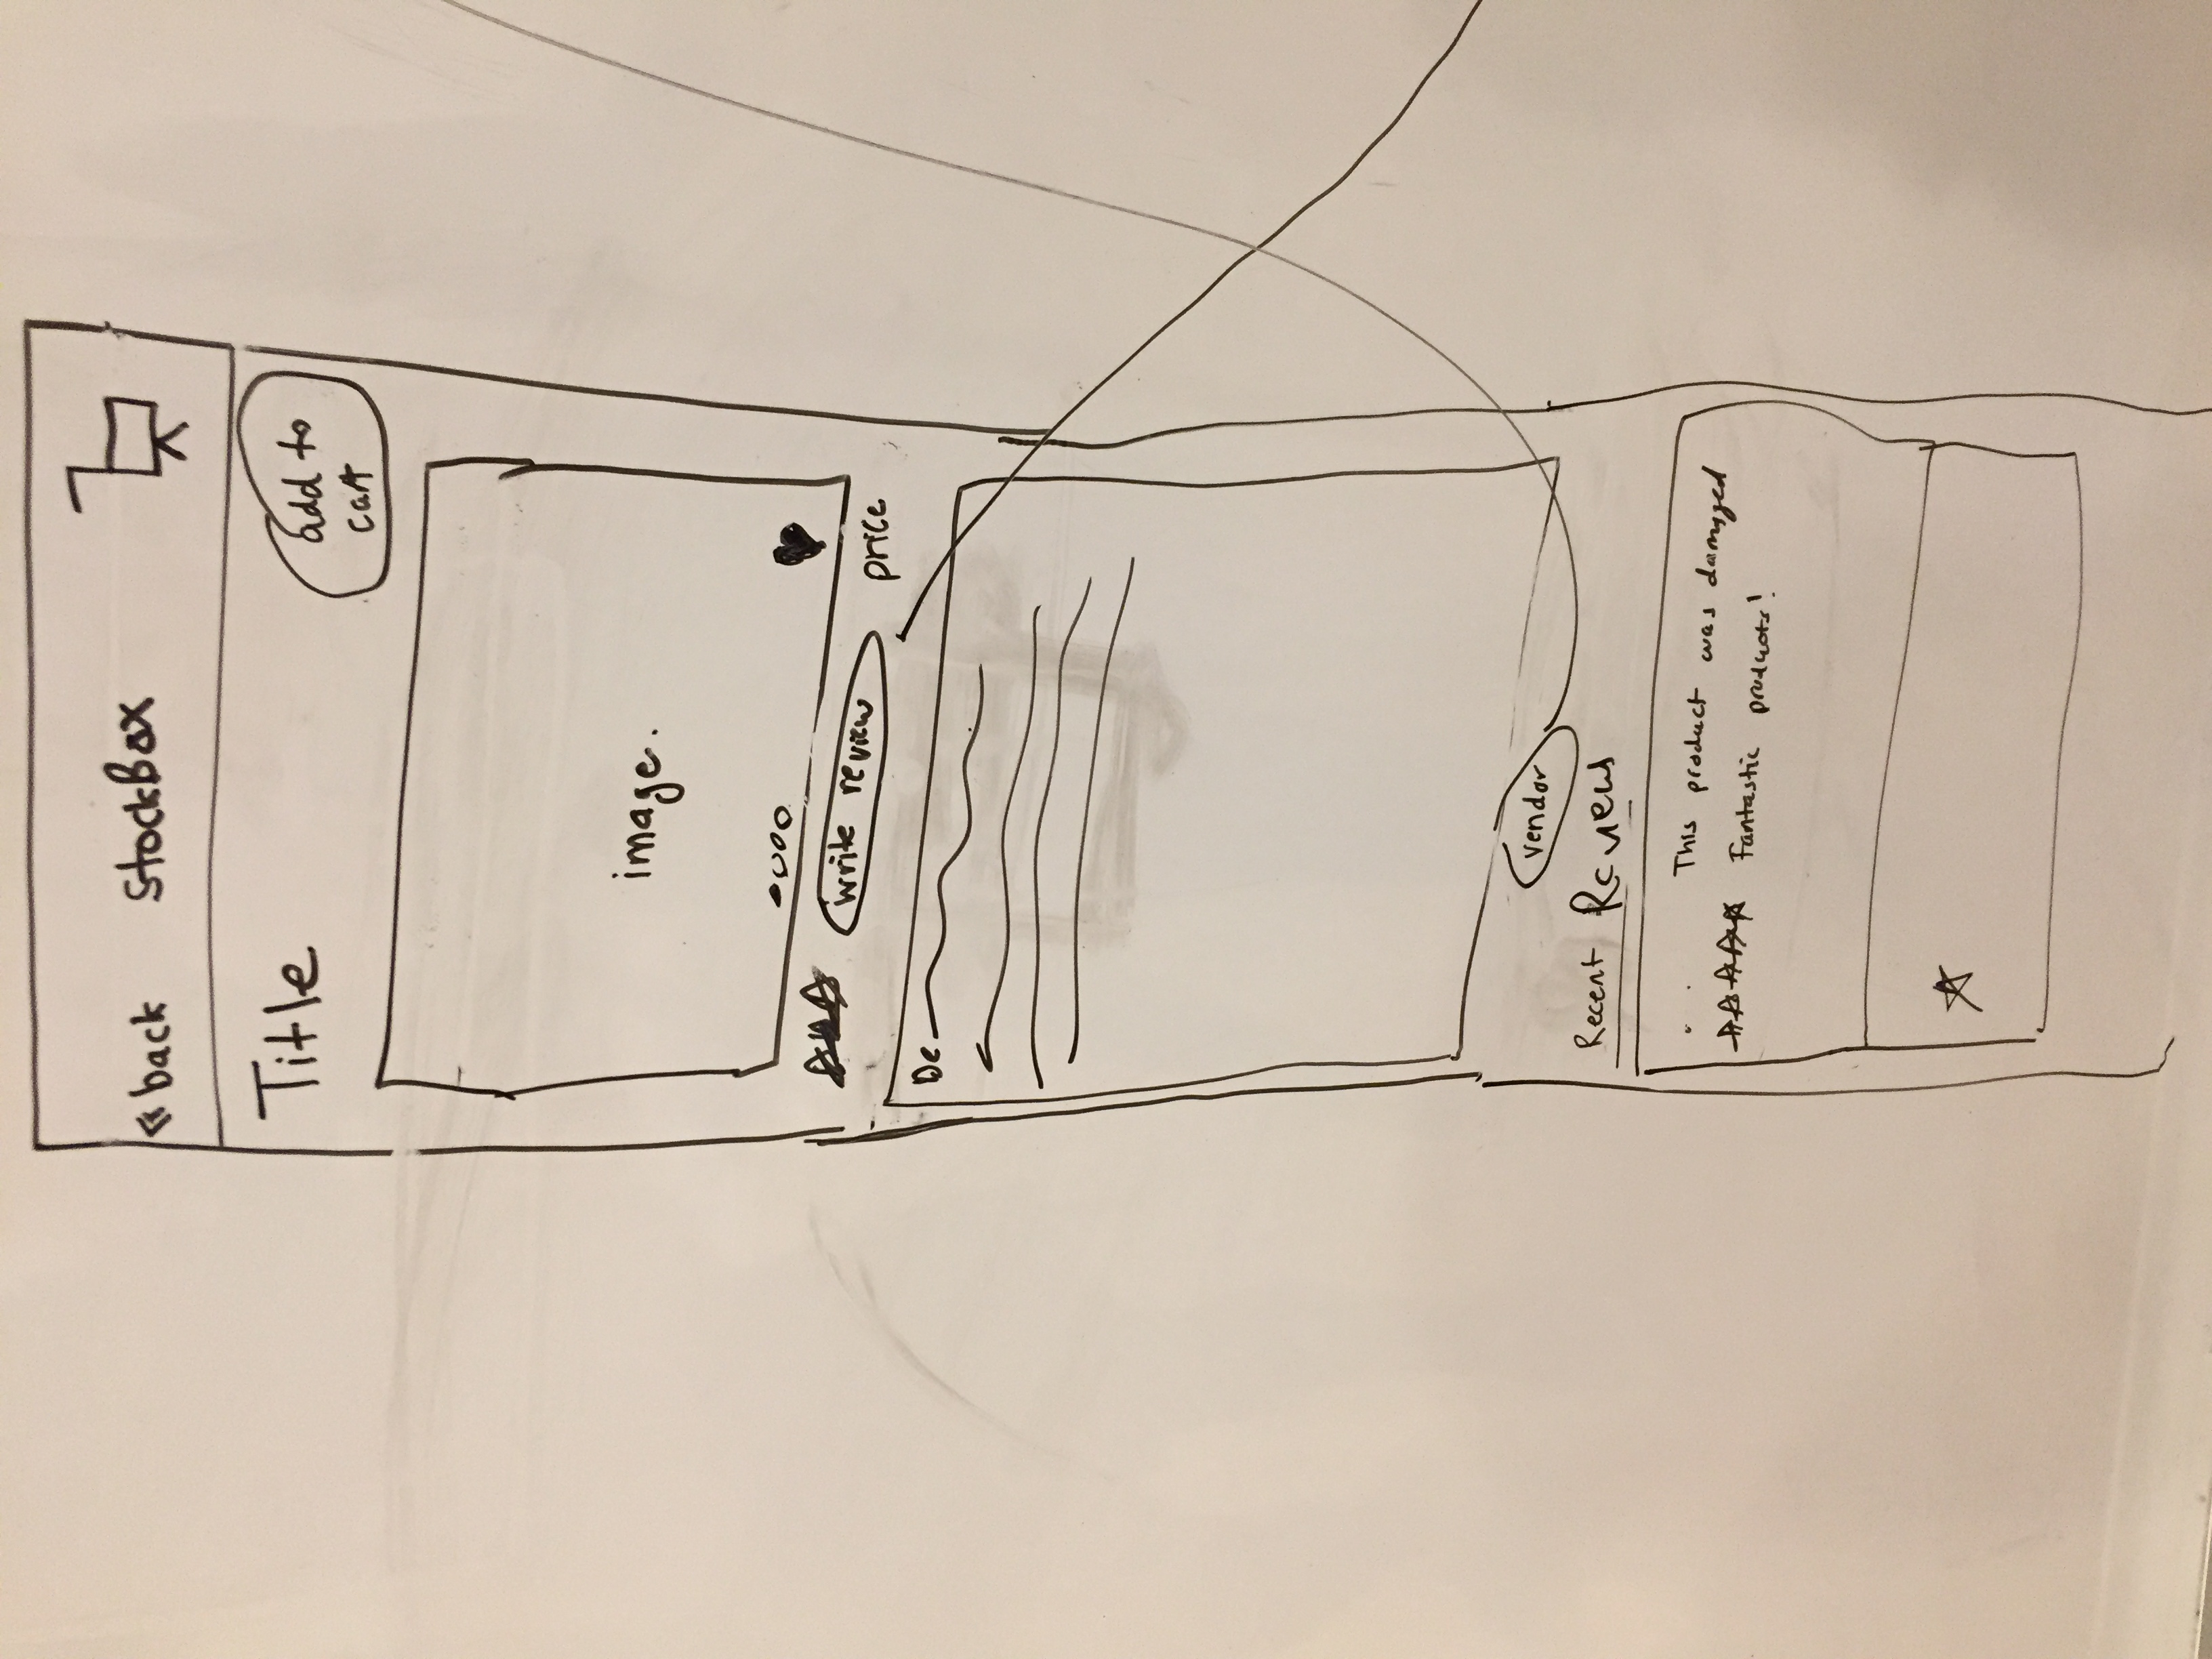 « back StockBox
Title
add to
cart
image.
write review
price
De
vendor
Recent Reviews
This product was damaged
Fantastic products!